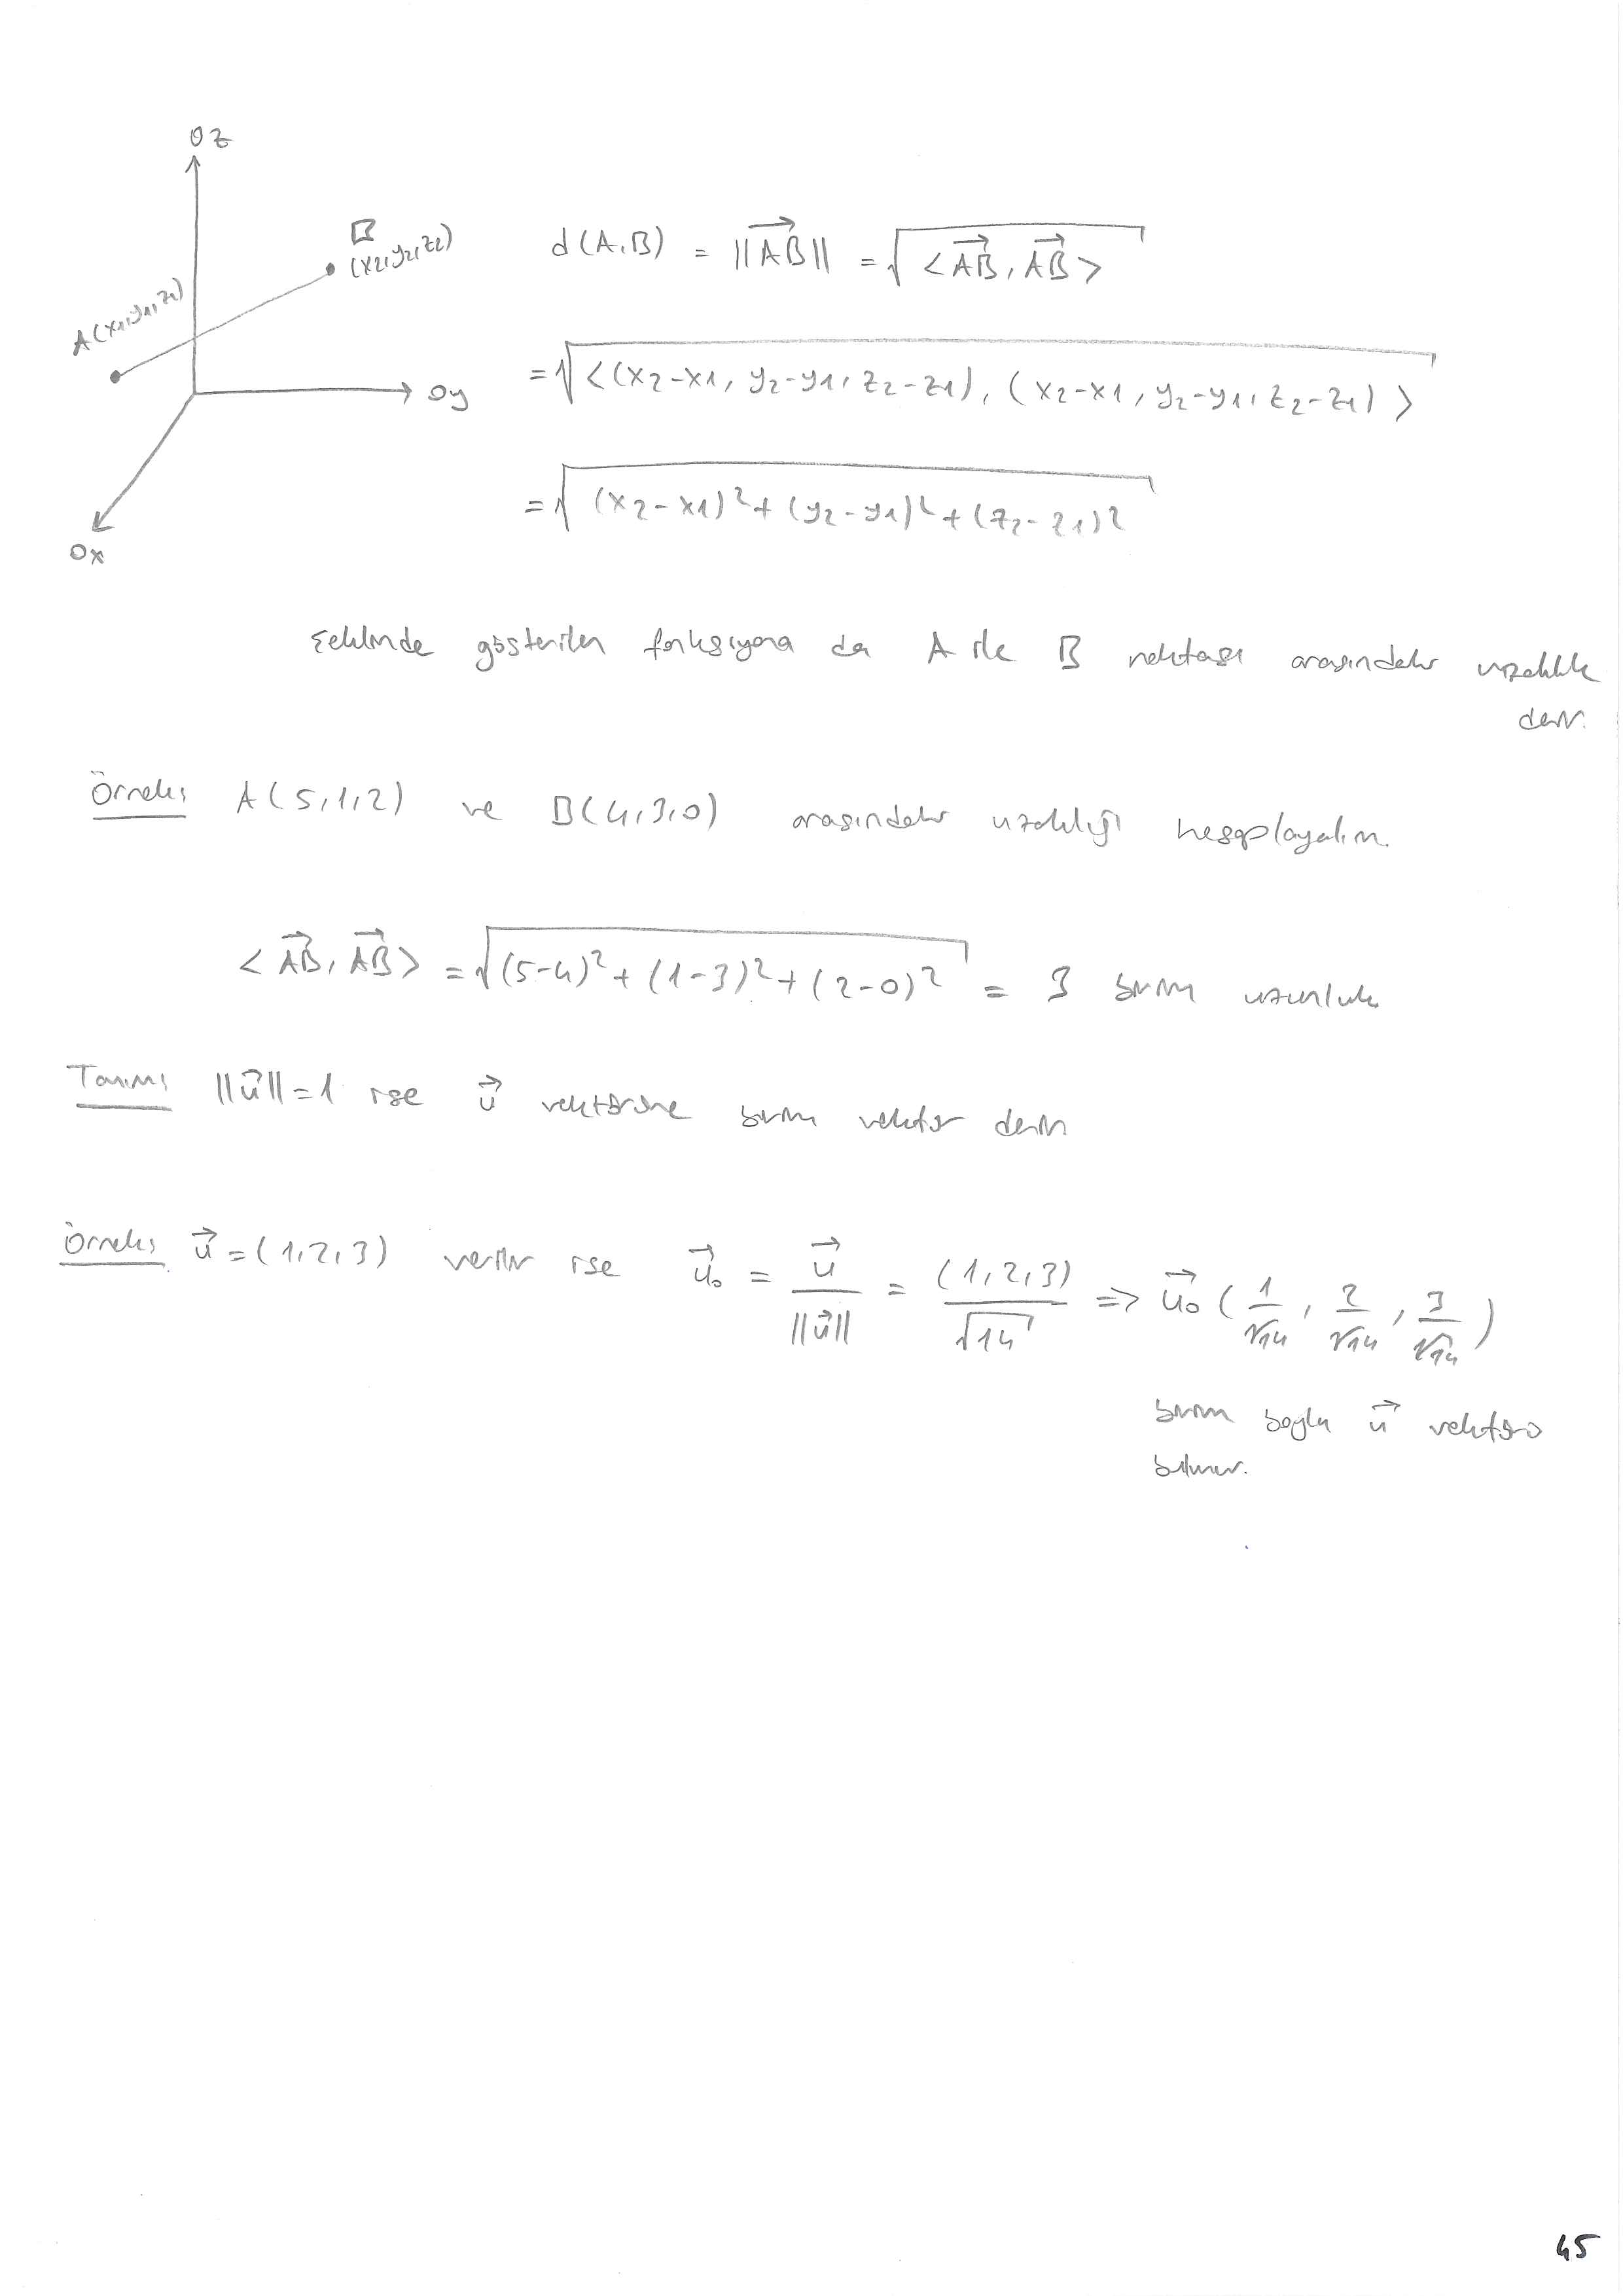 Oz
B
(x2, y2, z2)
A(x1, y1, z1)
Oy
Ox
d(A,B) = ||AB|| = √<AB, AB>
= √<(x2-x1, y2-y1, z2-z1), (x2-x1, y2-y1, z2-z1)>
= √(x2-x1)² + (y2-y1)² + (z2-z1)²
şeklinde gösterilen fonksiyona da A ile B noktası arasındaki uzaklık
denir.
Örnek: A(5,1,2) ve B(4,3,0) arasındaki uzaklığı hesaplayalım.
<AB, AB> = √(5-4)² + (1-3)² + (2-0)² = 3 birim uzunluk
Tanım: ||u|| = 1 ise u vektörüne birim vektör denir
Örnek: u = (1,2,3) verilir ise u₀ = u / ||u|| = (1,2,3) / √14 => u₀ (1/√14, 2/√14, 3/√14)
birim boylu u vektörü
bulunur.
45